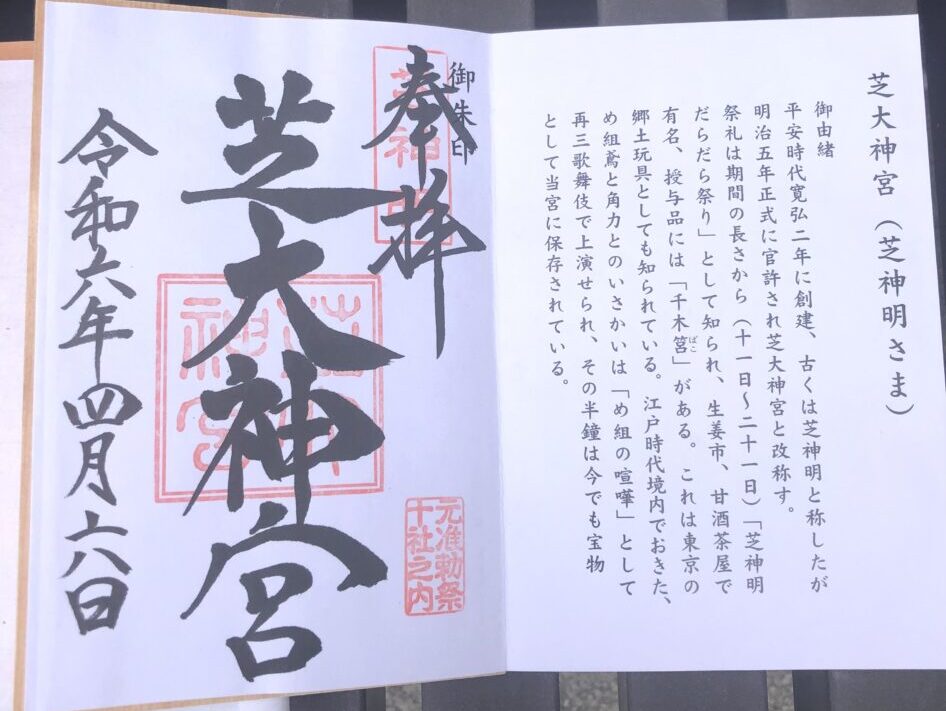 芝大神宮(芝神明さま)
御由緒
平安時代寛弘二年に創建、古くは芝神明と称したが
明治五年正式に官許され芝大神宮と改称す。
祭礼は期間の長さから(十一日~二十一日)「芝神明
だらだら祭り」として知られ、生姜市、甘酒茶屋で
有名、授与品には「千木筥ばこ」がある。これは東京の
郷土玩具としても知られている。江戸時代境内でおきた、
め組鳶と角力とのいさかいは「め組の喧嘩」として
再三歌舞伎で上演せられ、その半鐘は今でも宝物
として当宮に保存されている。
御朱印
奉拝
元准勅祭
十社之内
芝大神宮
令和六年四月六日